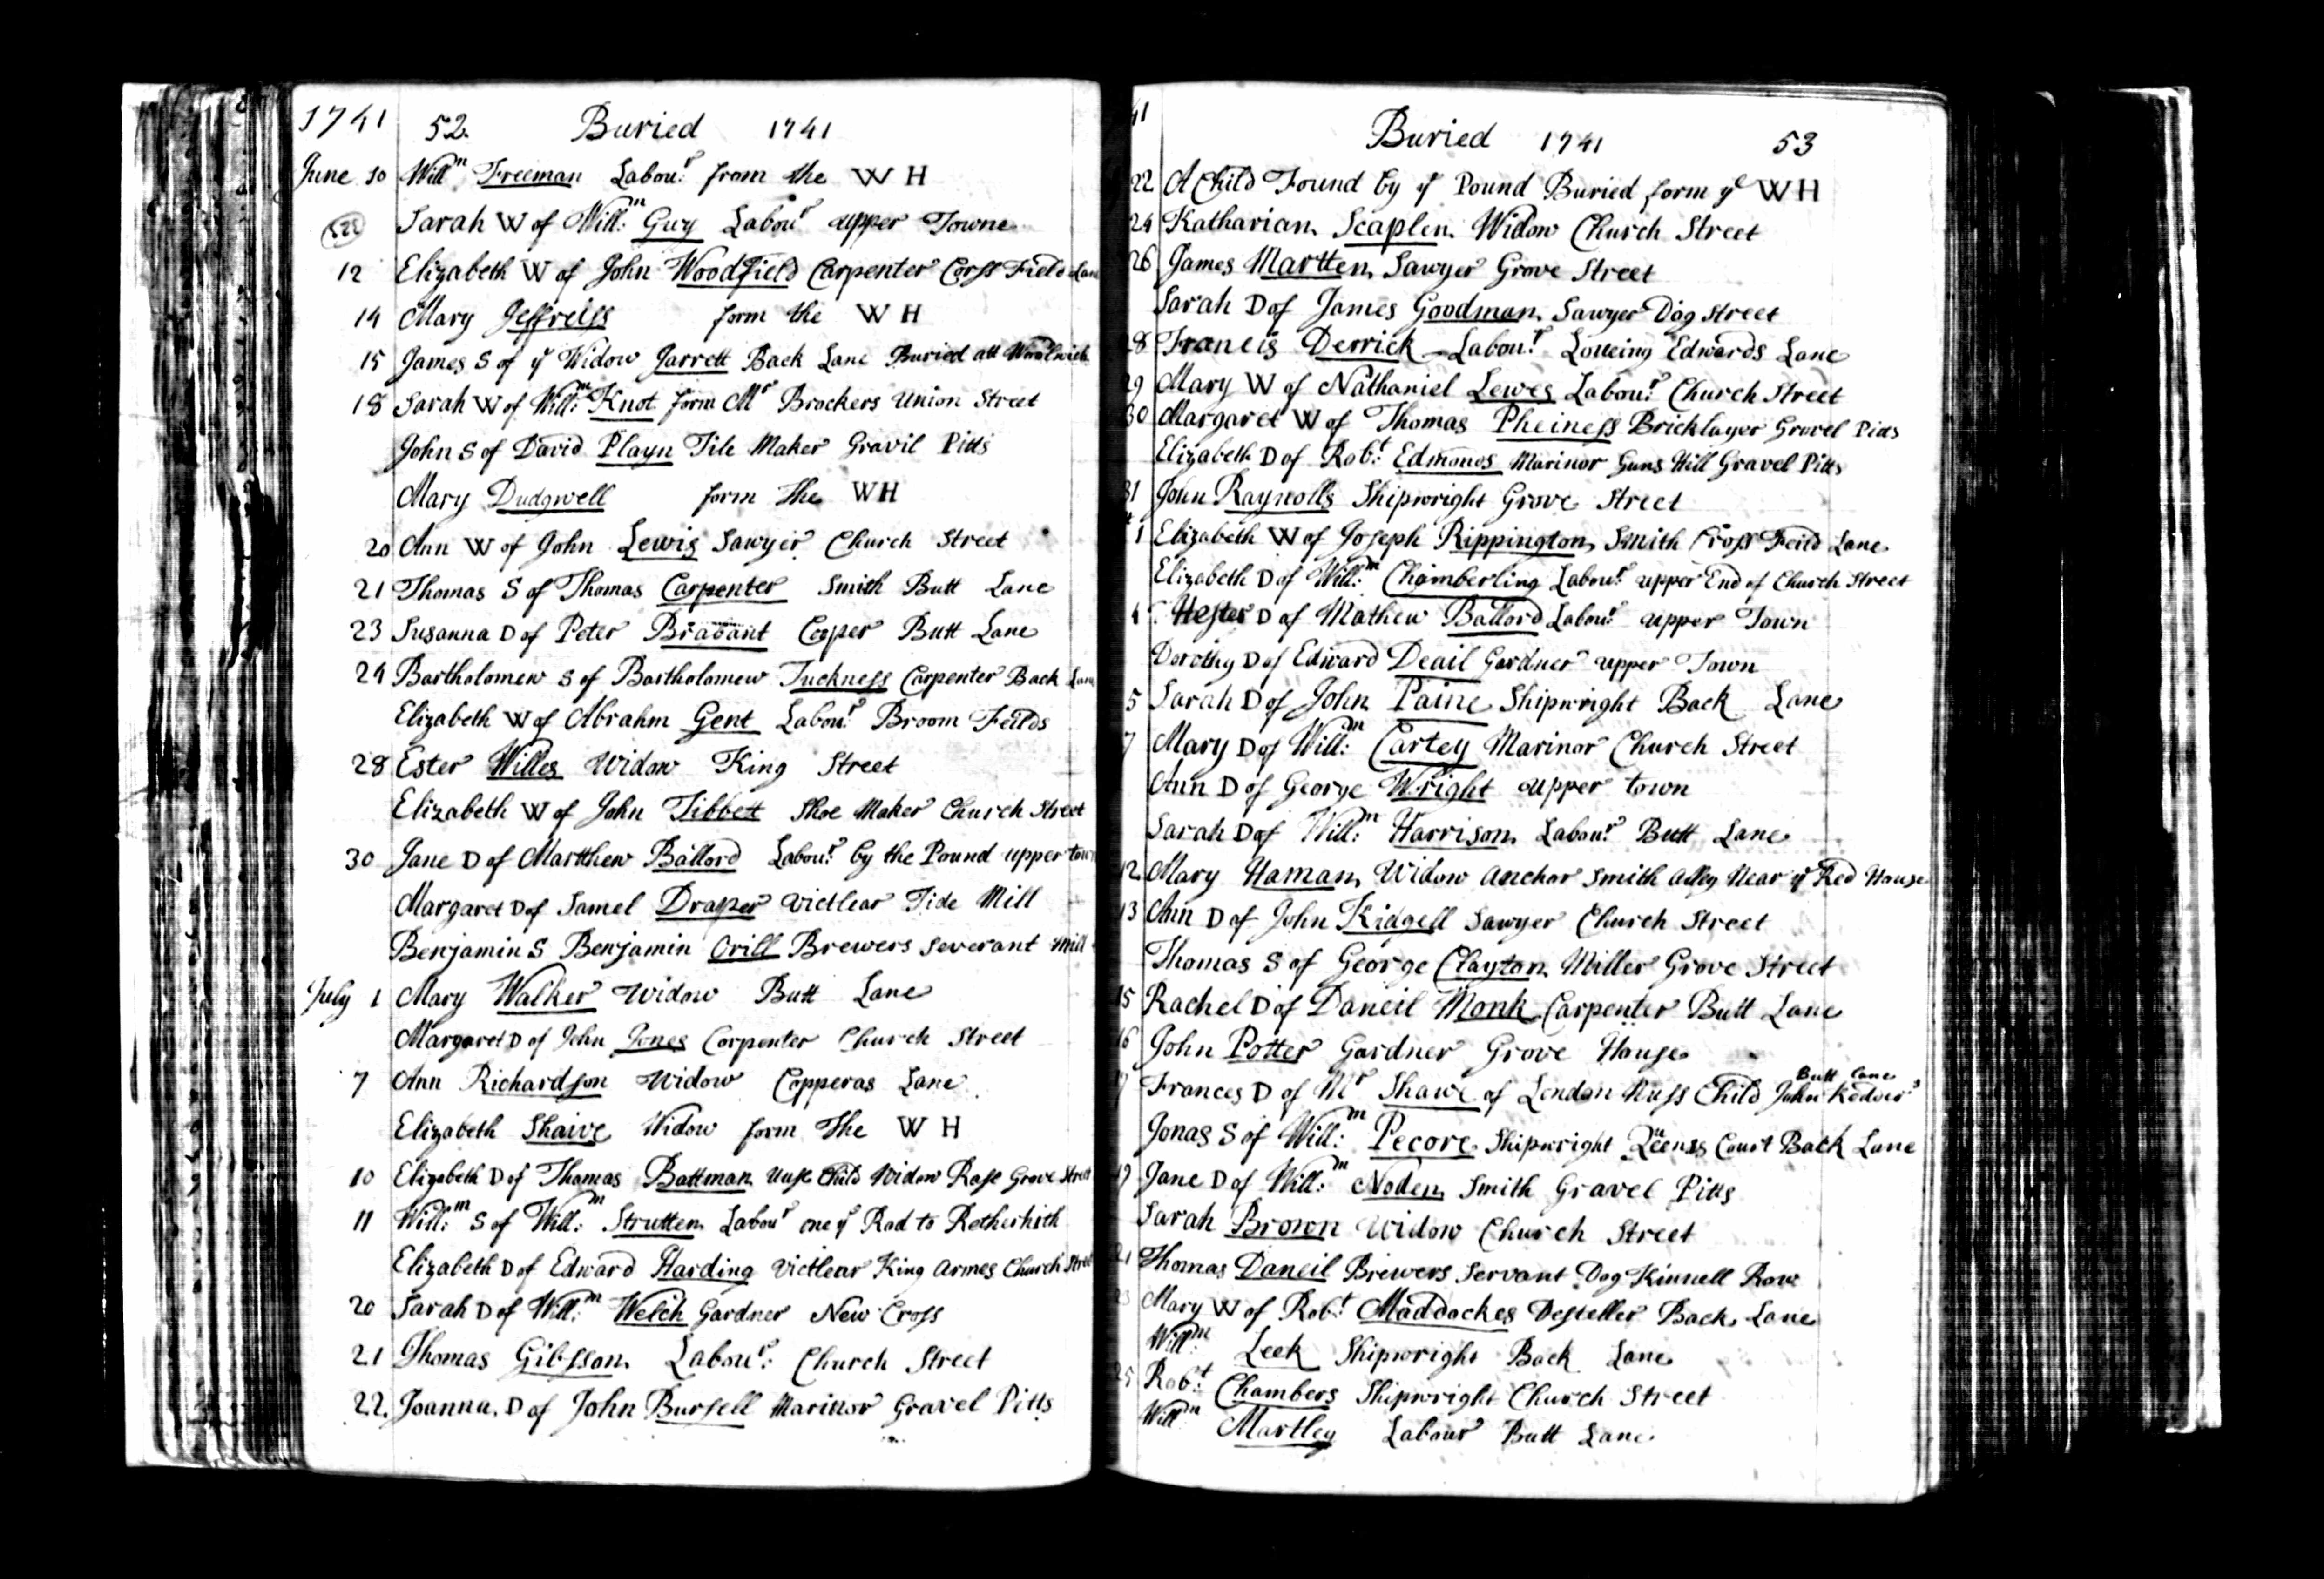 1741 52. Buried 1741
June 10 Will.m Freeman Labou.r from the W H
Sarah W of Will.m Guy Labou.r upper Towne
12 Elizabeth W of John Woodfield Carpenter Corss Field Lane
14 Mary Jeffrelss form the W H
15 James S of ye Widow Jarrett Back Lane Buried att Woolwich
18 Sarah W of Will.m Knot form Mr Brockers Union Street
John S of David Playn Tile Maker Gravil Pitts
Mary Dudgwell form the W H
20 Ann W of John Lewis Sawyer Church Street
21 Thomas S of Thomas Carpenter Smith Butt Lane
23 Susanna D of Peter Brabant Cooper Butt Lane
24 Bartholomew S of Bartholomew Tuckness Carpenter Back Lane
Elizabeth W of Abrahm Gent Labou.r Broom Feilds
28 Ester Willes Widow King Street
Elizabeth W of John Tibbett Shoe Maker Church Street
30 Jane D of Martthew Ballord Labou.r by the Pound upper town
Margaret D of Samel Draper Victlear Tide Mill
Benjamin S Benjamin Orill Brewers Severant Mill
July 1 Mary Walker Widow Butt Lane
Margaret D of John Jones Carpenter Church Street
7 Ann Richardson Widow Copperas Lane
Elizabeth Shaive Widow form the W H
10 Elizabeth D of Thomas Battman Nuse Child Widow Rose Grove Street
11 Will.m S of Will.m Strutten Labour one ye Rad to Retherhith
Elizabeth D of Edward Harding Victlear King Armes Church Street
20 Sarah D of Will.m Welch Gardner New Cross
21 Thomas Gibsson Labou.r Church Street
22. Joanna D of John Bursell Marinor Gravel Pitts
41 Buried 1741 53
22 A Child Found by ye Pound Buried form ye W H
24 Katharian Scaplen Widow Church Street
26 James Martten Sawyer Grove Street
Sarah D of James Goodman Sawyer Dog Street
28 Francis Derrick Labou.r Loueing Edwards Lane
29 Mary W of Nathaniel Lewes Labou.r Church Street
30 Margaret W of Thomas Pheiness Bricklayer Grovel Pitts
Elizabeth D of Rob.t Edmones Marinor Guns Hill Gravel Pitts
31 John Raynolls Shipwright Grove Street
1 Elizabeth W of Joseph Rippington Smith Cross Feild Lane
Elizabeth D of Will.m Chamberling Labou.r upper End of Church Street
4 Hester D of Mathew Ballord Labou.r upper Town
Dorothy D of Edward Deail Gardner upper Town
5 Sarah D of John Paine Shipwright Back Lane
7 Mary D of Will.m Cartey Marinor Church Street
Ann D of George Wright upper town
Sarah D of Will.m Harrison Labou.r Butt Lane
12 Mary Haman Widow Anchor Smith Alley Near ye Red House
13 Ann D of John Kidgell Sawyer Church Street
Thomas S of George Clayton Miller Grove Street
15 Rachel D of Daneil Monk Carpenter Butt Lane
16 John Potter Gardner Grove House
Butt Lane
17 Frances D of Mr Shawe of London Nuss Child John Kedors
Jonas S of Will.m Pecore Shipwright Court Back Lane
19 Jane D of Will.m Noden Smith Gravel Pitts
Sarah Brown Widow Church Street
21 Thomas Daneil Brewers Servant Dog Kinnell Row
23 Mary W of Rob.t Maddockes Desteller Back Lane
Will.m Leek Shipwright Back Lane
25 Rob.t Chambers Shipwright Church Street
Will.m Martley Labour Butt Lane